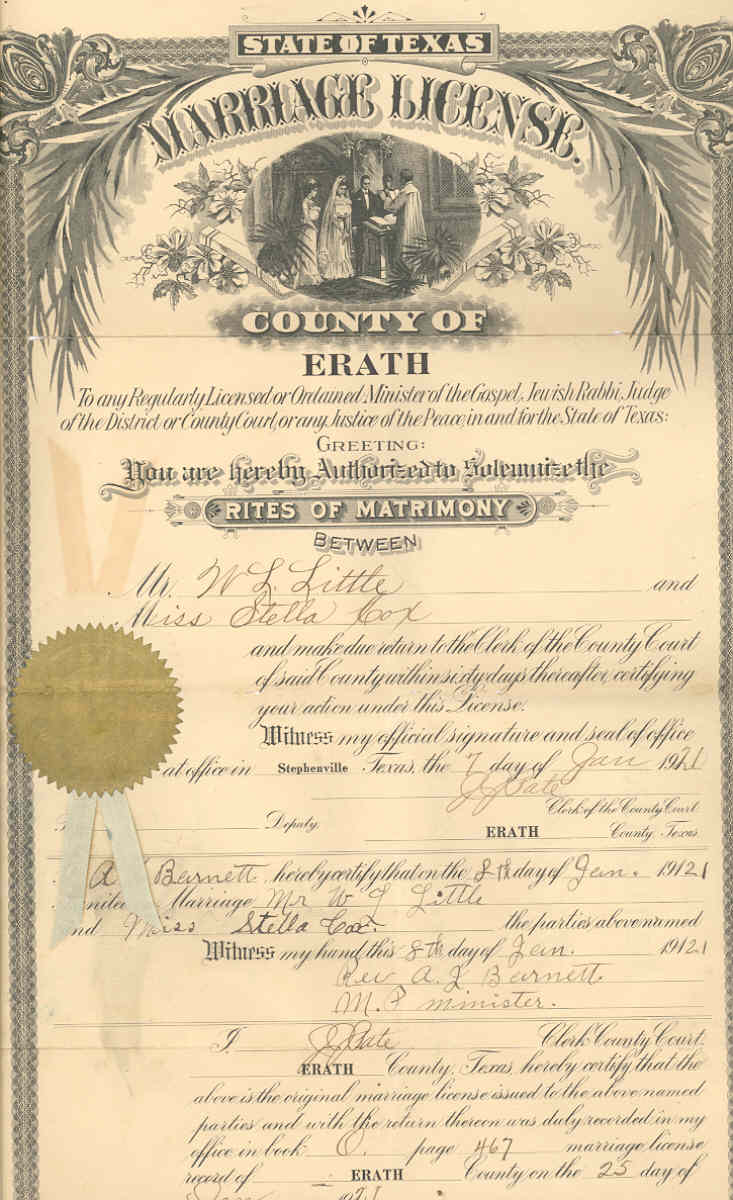 STATE OF TEXAS
MARRIAGE LICENSE.
COUNTY OF
ERATH
To any Regularly Licensed or Ordained Minister of the Gospel, Jewish Rabbi, Judge
of the District or County Court, or any Justice of the Peace, in and for the State of Texas:
GREETING:
You are hereby Authorized to Solemnize the
RITES OF MATRIMONY
BETWEEN
Mr. W L Little and
Miss Stella Cox
and make due return to the Clerk of the County Court
of said County within sixty days thereafter, certifying
your action under this License.
Witness my official signature and seal of office
at office in Stephenville Texas, the 7 day of Jan 1921
Pate
Clerk of the County Court
Deputy. ERATH County, Texas.
A Barnett hereby certify that on the 8th day of Jan. 19121
Marriage Mr W L Little
Miss Stella Cox. the parties above named
Witness my hand this 8th day of Jan. 19121
Rev A. J Barnett
M. P minister.
I Pate Clerk County Court.
ERATH County, Texas, hereby certify that the
above is the original marriage license issued to the above named
parties and with the return thereon was duly recorded in my
office in book O. page 467 marriage license
record of ERATH County on the 25 day of